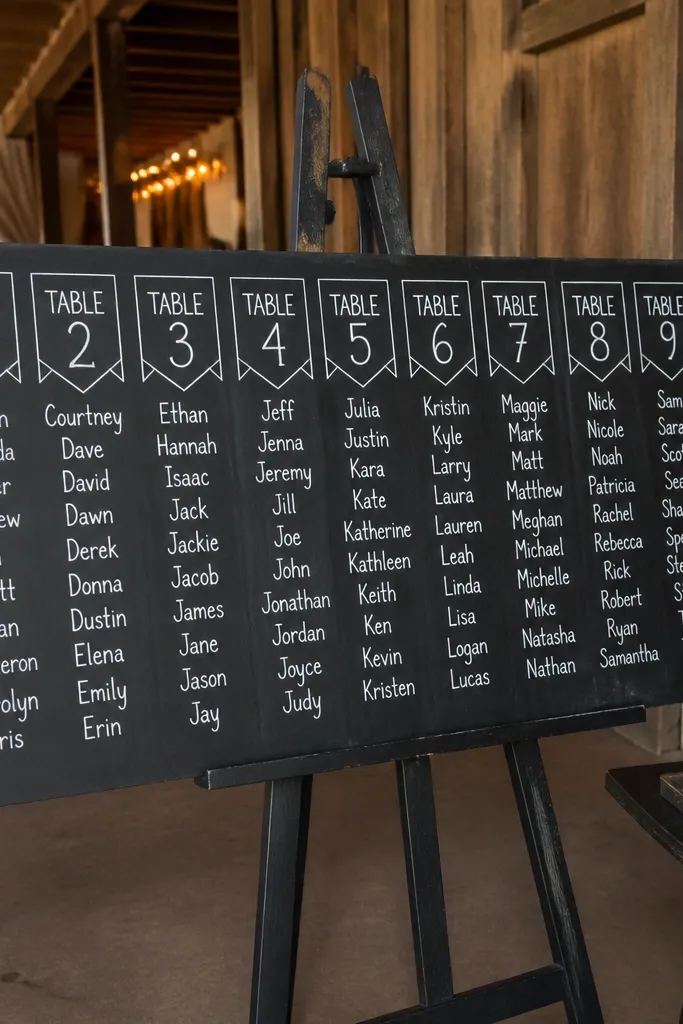 TABLE
2
Courtney
Dave
David
Dawn
Derek
Donna
Dustin
Elena
Emily
Erin
TABLE
3
Ethan
Hannah
Isaac
Jack
Jackie
Jacob
James
Jane
Jason
Jay
TABLE
4
Jeff
Jenna
Jeremy
Jill
Joe
John
Jonathan
Jordan
Joyce
Judy
TABLE
5
Julia
Justin
Kara
Kate
Katherine
Kathleen
Keith
Ken
Kevin
Kristen
TABLE
6
Kristin
Kyle
Larry
Laura
Lauren
Leah
Linda
Lisa
Logan
Lucas
TABLE
7
Maggie
Mark
Matt
Matthew
Meghan
Michael
Michelle
Mike
Natasha
Nathan
TABLE
8
Nick
Nicole
Noah
Patricia
Rachel
Rebecca
Rick
Robert
Ryan
Samantha
TABLE
9